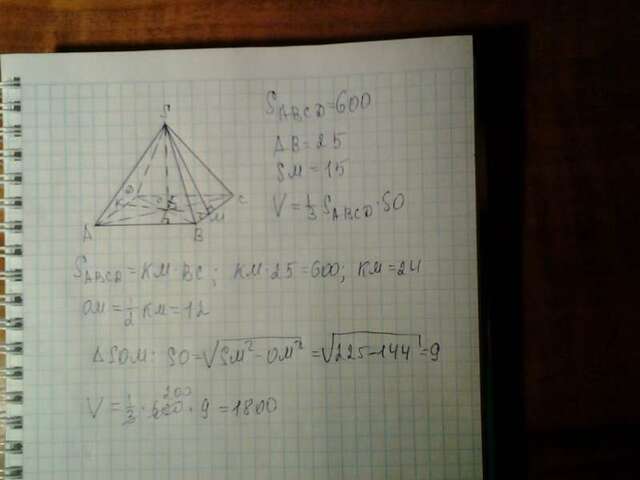 S
A
B
C
D
K
O
M
S_ABCD=600
AB=25
SM=15
V=1/3 S_ABCD·SO
S_ABCD=KM·BC; KM·25=600; KM=24
OM=1/2 KM=12
ΔSOM: SO=√SM²-OM² =√225-144=9
V=1/3·600·9=1800
200